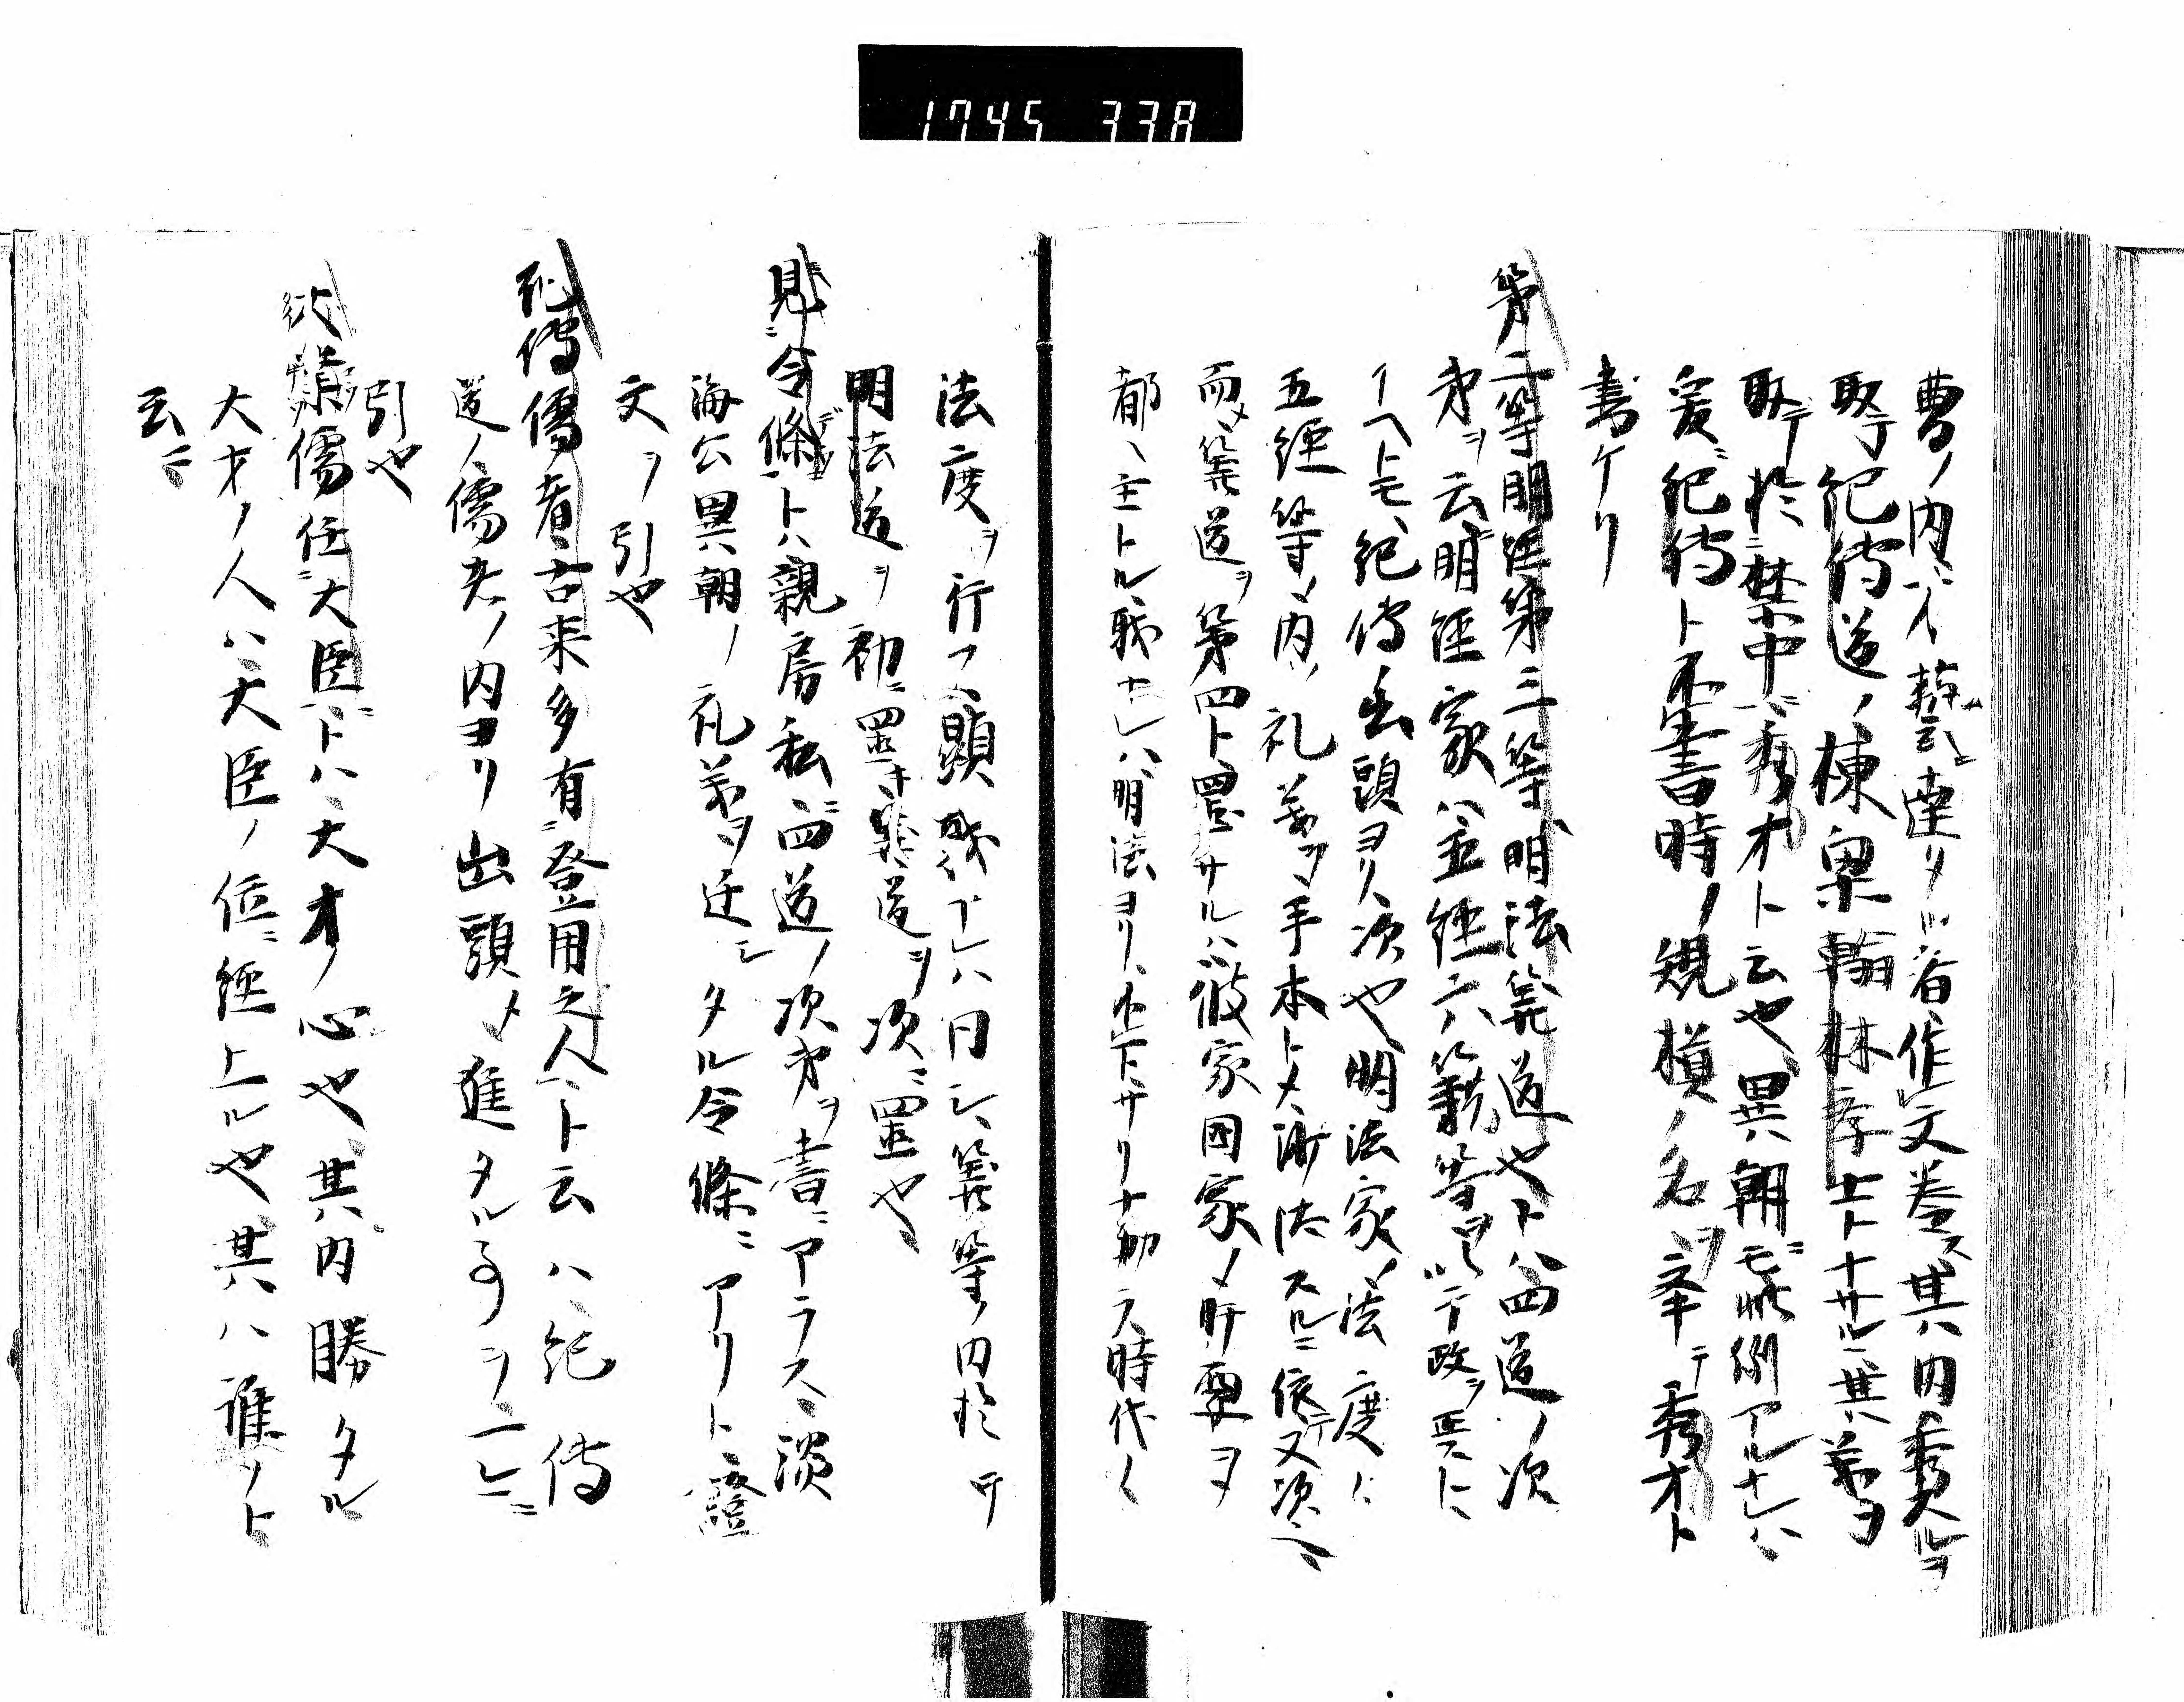 1745 338
曹ノ内ニ才藝云達タル者作文巻ス其内秀タルヲ
取テ紀傳道ノ棟梁翰林孝士ト十サル其義ヲ
取テ於禁中ニ秀才ト云也異朝ニモ此例アルナレハ
爰ニ紀傳ト不書時ノ規模ノ名ヲ挙テ秀才ト
書ケリ
第二等明経第三等明法筭道也トハ四道ノ次
第ヲ云明経家ハ五経六籍等ヲ以テ政ヲ
イヘトモ紀傳出頭ヨリ次也明法家ノ法度ハ
五経等ノ内ノ礼義ヲ手本トメ法スルニ依テ又次
而メ筭道ヲ第四ト置サルハ彼家国家ノ肝要ヲ
都ヘ主トル職ナレハ明法ヨリ不下サリナカラ時代
法度ヲ行フ顕職ナレハ同シ筭等ノ内於テ
明法道ヲ初ニ置キ筭道ヲ次ニ置也
見令條トハ親房私ニ四道ノ次第ヲ書ニアラス淡
海公異朝ノ礼義ヲ迁シタル令條ニアリト證
文ヲ引也
紀傳儒者古来多有登用之人ト云ハ紀傳
道ノ儒夫ノ内ヨリ出頭メ進タル事ヲ
引也
以業儒任大臣トハ大才ノ心也其内勝タル
大才ノ人ハ大臣ノ位ニ経上ル也其ハ誰ノト
云ニ